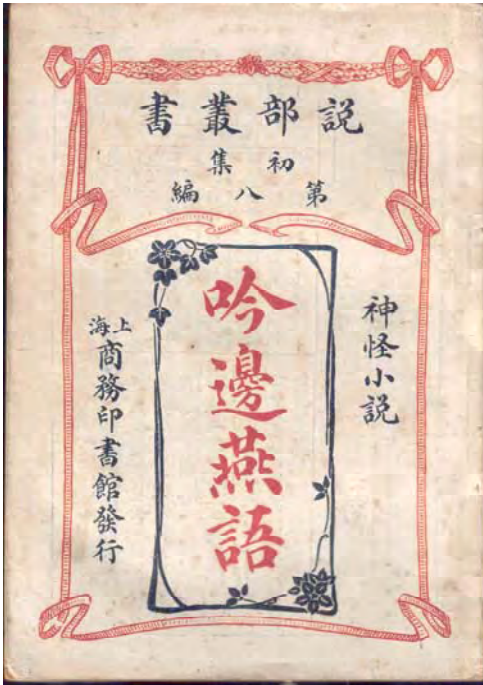 說部叢書
初集
第八編
神怪小說
吟邊燕語
上海商務印書館發行